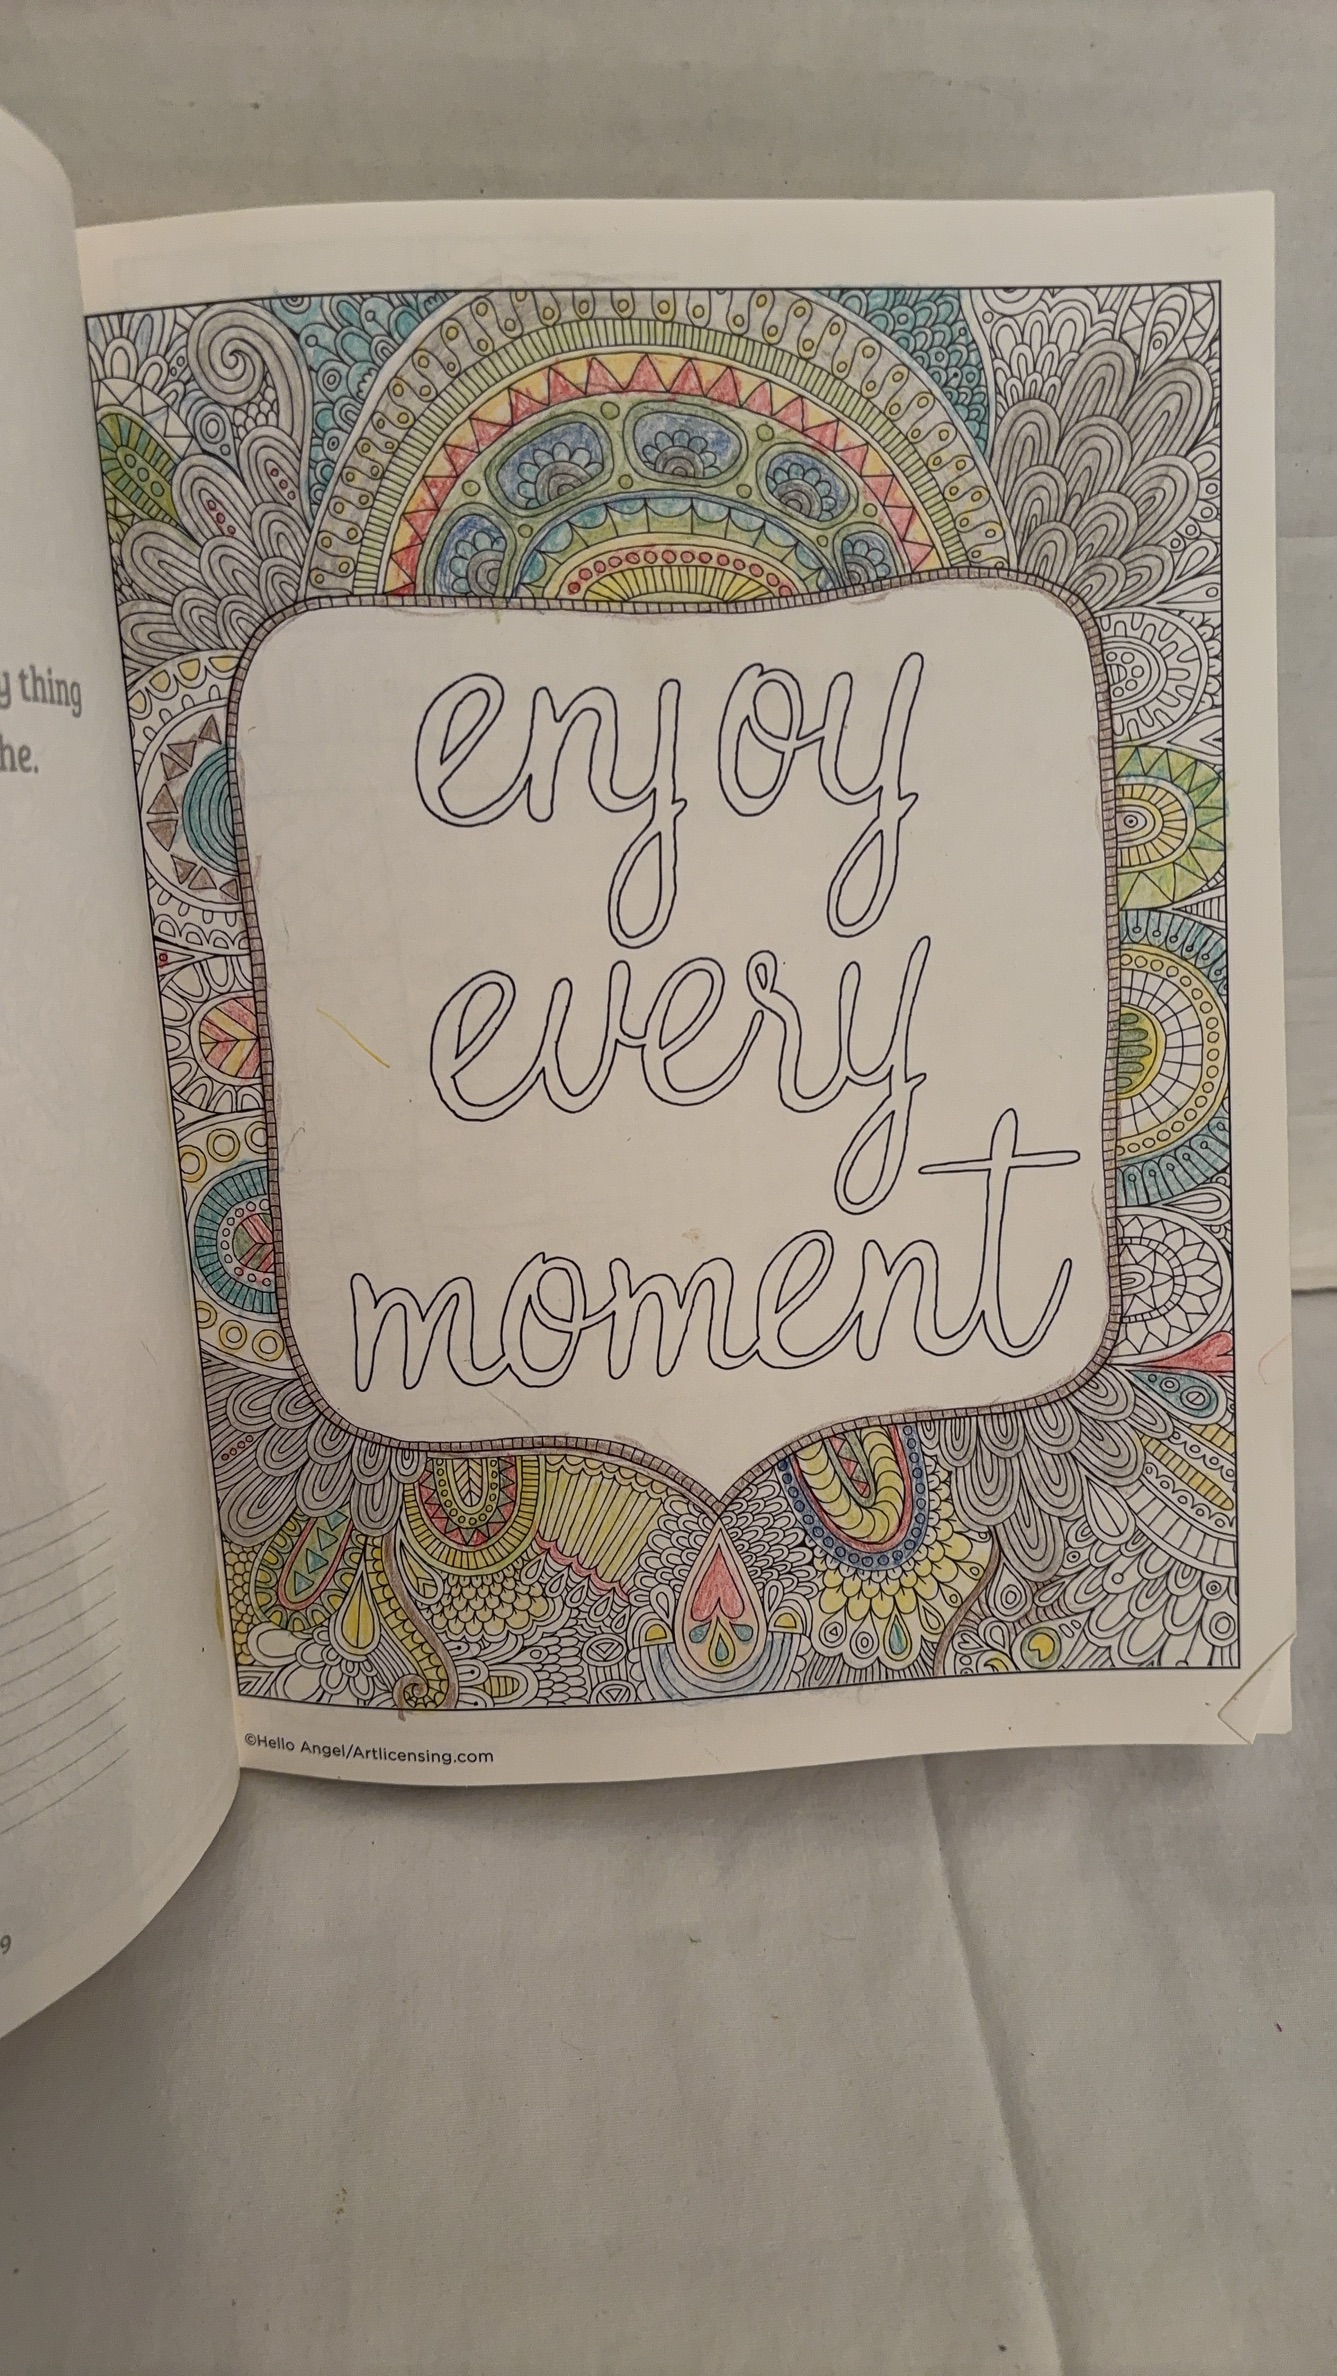 y thing
he.
enjoy
every
moment
©Hello Angel/Artlicensing.com
9